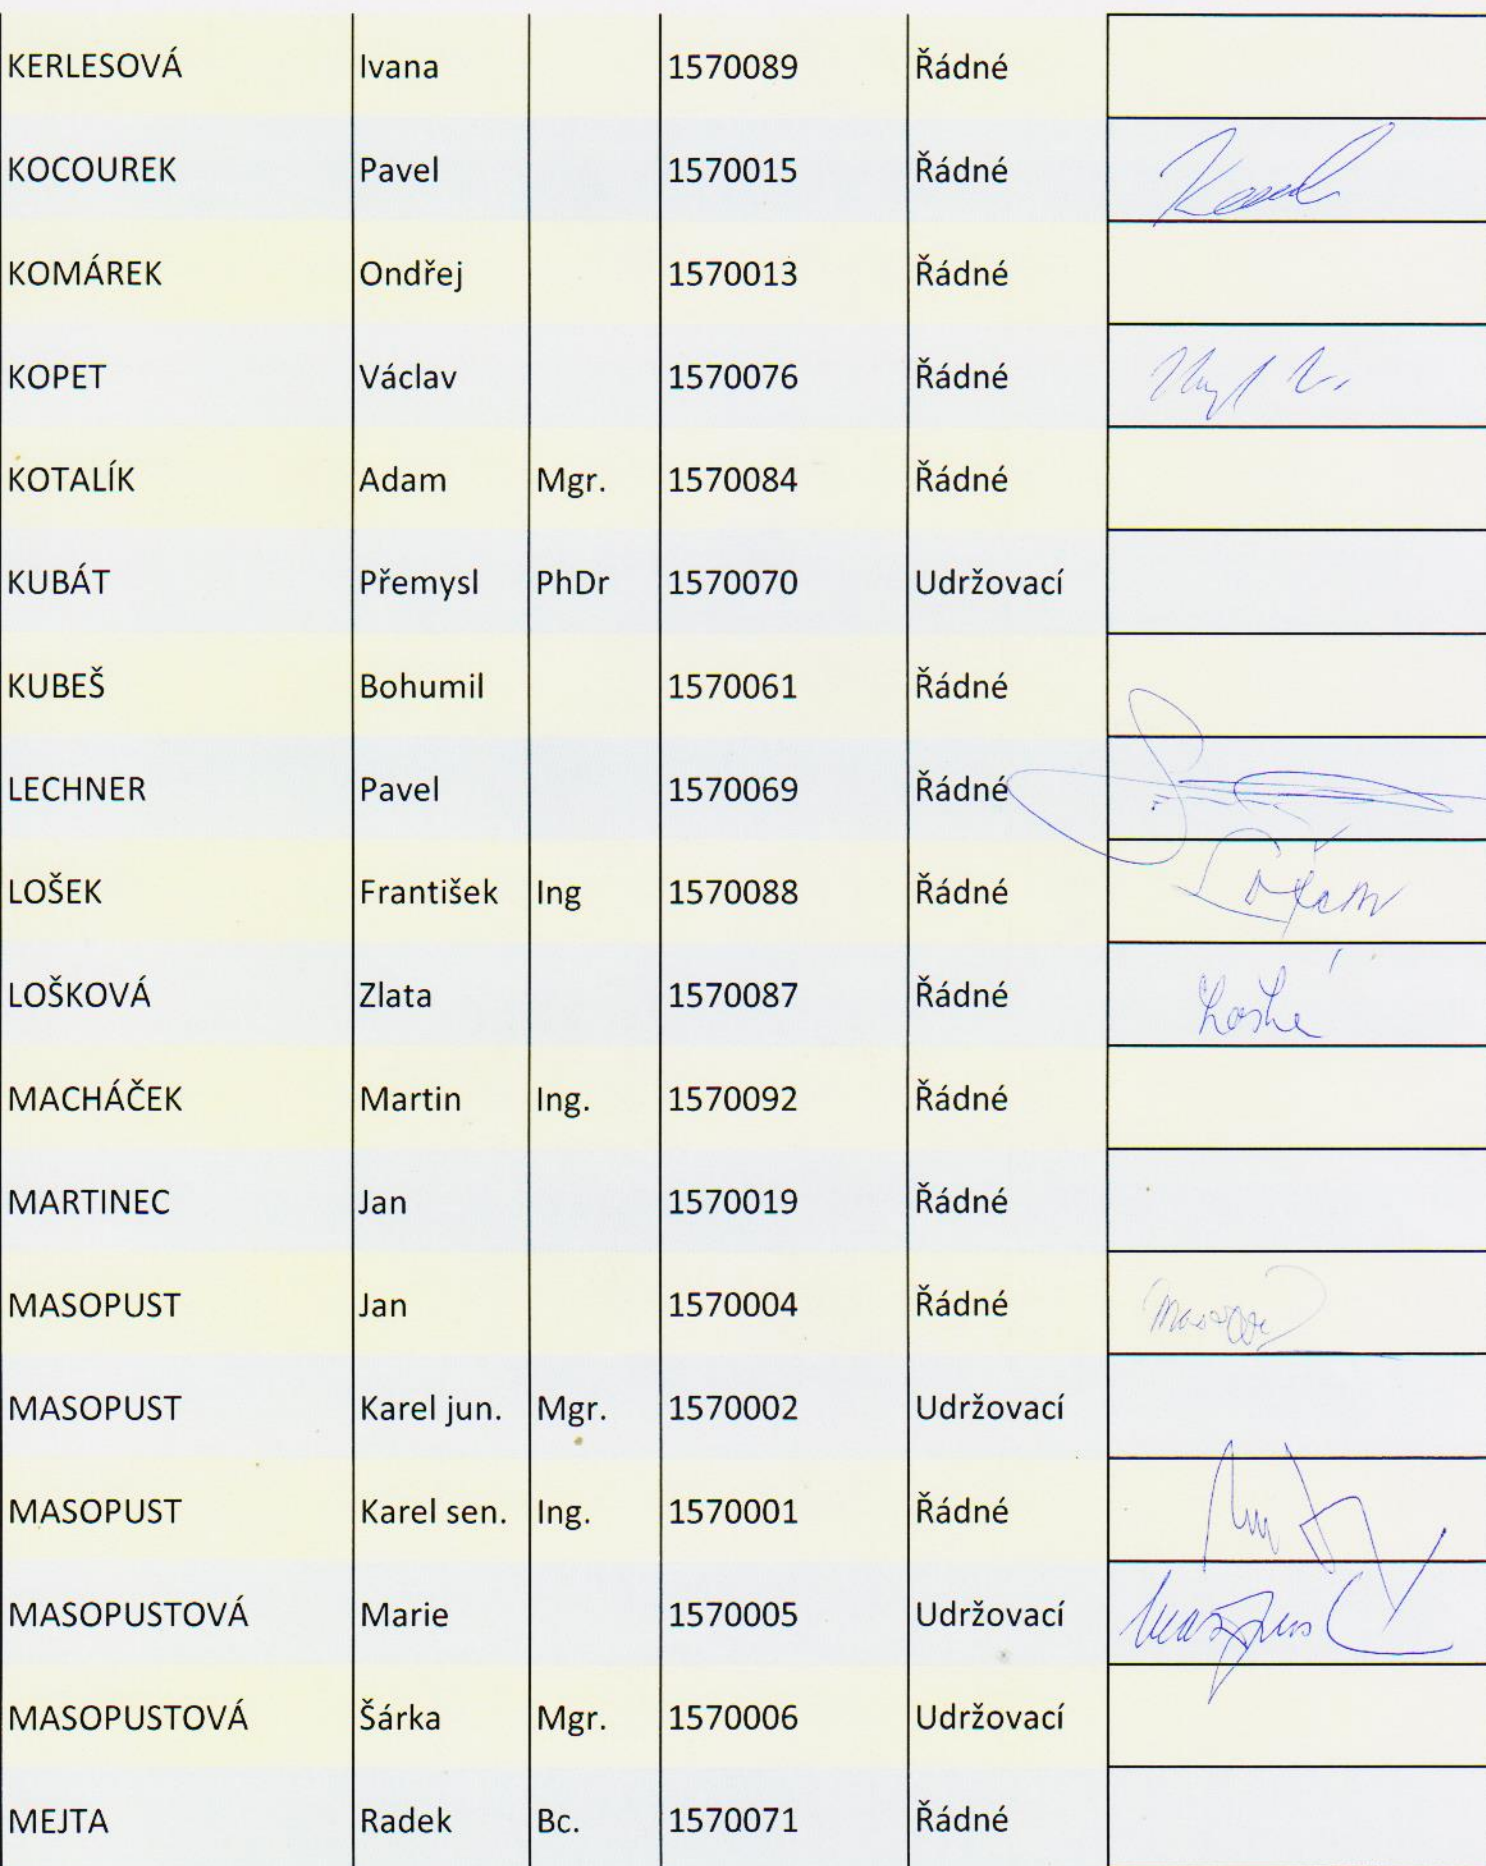 KERLESOVÁ Ivana 1570089 Řádné
KOCOUREK Pavel 1570015 Řádné
KOMÁREK Ondřej 1570013 Řádné
KOPET Václav 1570076 Řádné
KOTALÍK Adam Mgr. 1570084 Řádné
KUBÁT Přemysl PhDr 1570070 Udržovací
KUBEŠ Bohumil 1570061 Řádné
LECHNER Pavel 1570069 Řádné
LOŠEK František Ing 1570088 Řádné
LOŠKOVÁ Zlata 1570087 Řádné
MACHÁČEK Martin Ing. 1570092 Řádné
MARTINEC Jan 1570019 Řádné
MASOPUST Jan 1570004 Řádné
MASOPUST Karel jun. Mgr. 1570002 Udržovací
MASOPUST Karel sen. Ing. 1570001 Řádné
MASOPUSTOVÁ Marie 1570005 Udržovací
MASOPUSTOVÁ Šárka Mgr. 1570006 Udržovací
MEJTA Radek Bc. 1570071 Řádné